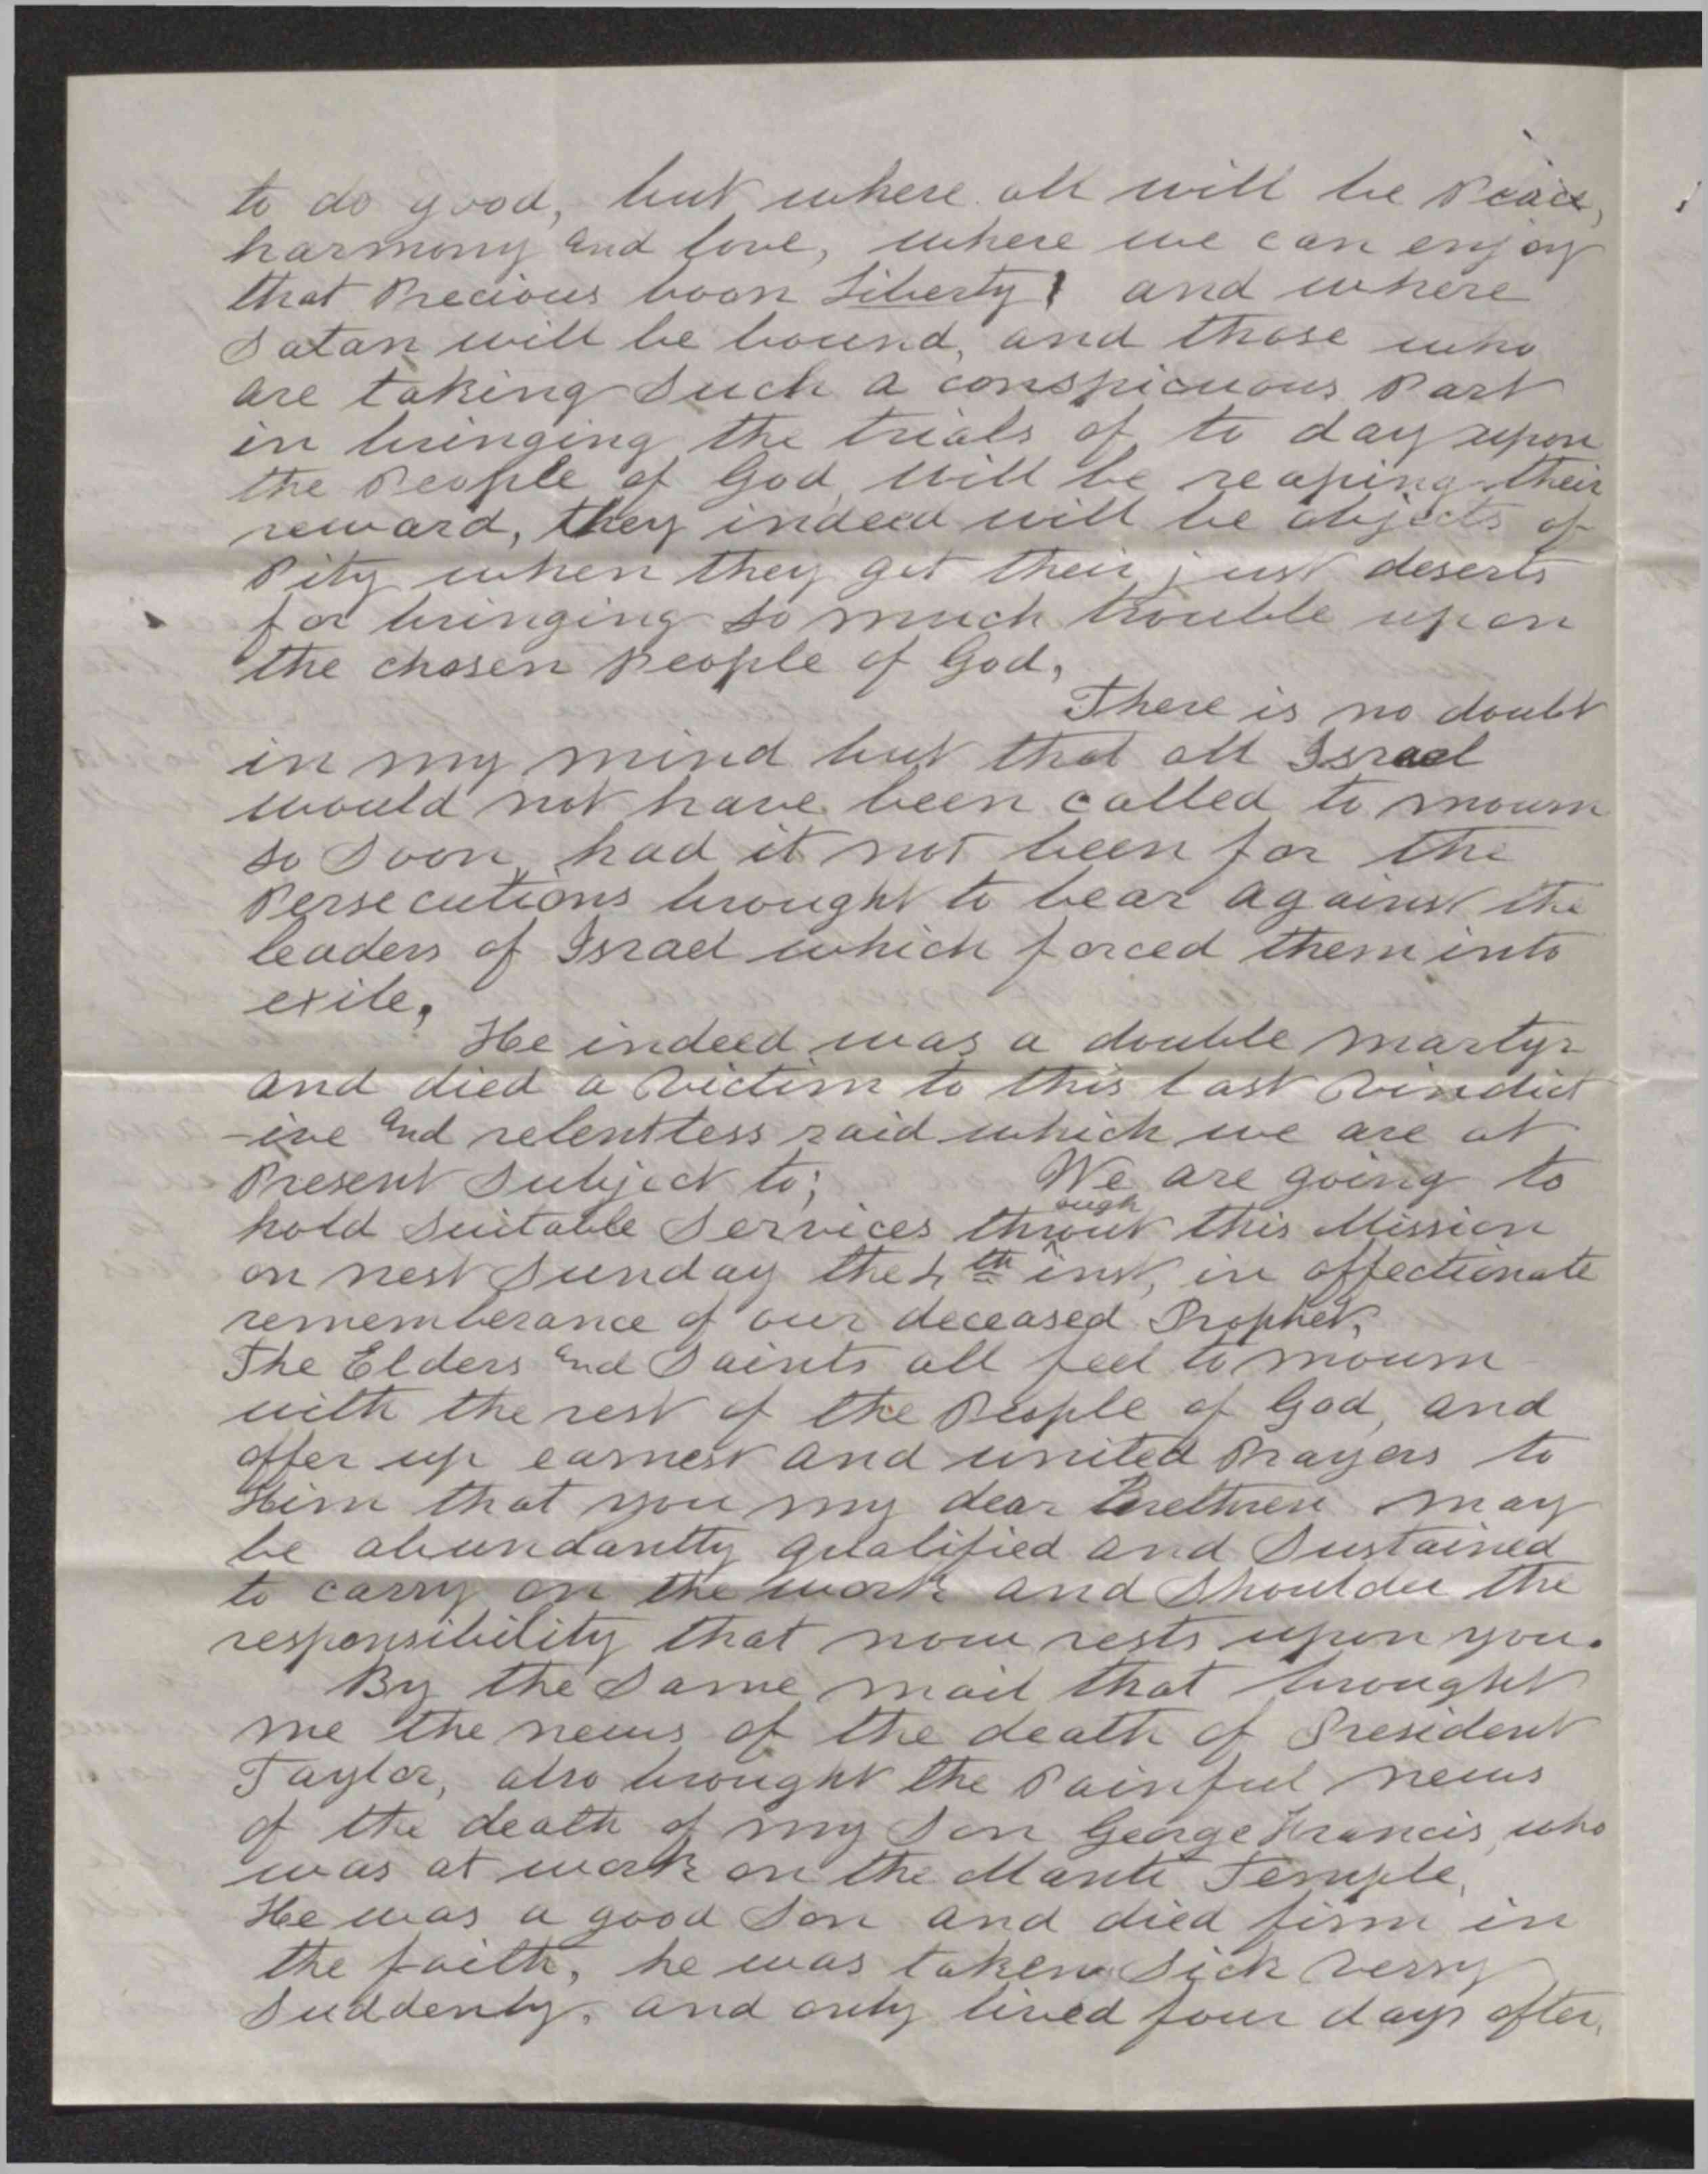 to do good, but where all will be Peace,
harmony and love, where we can enjoy
that Precious boon Liberty! and where
Satan will be bound, and those who
are taking such a conspicuous Part
in bringing the trials of to day upon
the People of God, will be reaping their
reward, they indeed will be objects of
Pity when they get their just deserts
for bringing so much trouble upon
the chosen People of God,
There is no doubt
in my mind but that all Israel
would not have been called to mourn
so soon, had it not been for the
Persecutions brought to bear against the
leaders of Israel which forced them into
exile,
He indeed was a double martyr
and died a victim to this last vindict
-ive and relentless raid which we are at
Present subject to; We are going to
ough
hold suitable services throut this Mission
on nest Sunday the 4th inst, in affectionate
rememberance of our deceased Prophet,
The Elders and Saints all feel to mourn
with the rest of the People of God, and
offer up earnest and united Prayers to
Him that you my dear Brethren may
be abundantly qualified and sustained
to carry on the work and shoulder the
responsibility that now rests upon you.
By the same mail that brought
me the news of the death of President
Taylor, also brought the Painful news
of the death of my Son George Francis, who
was at work on the Manti Temple,
He was a good Son and died firm in
the faith, he was taken sick verry
suddenly, and only lived four days after,